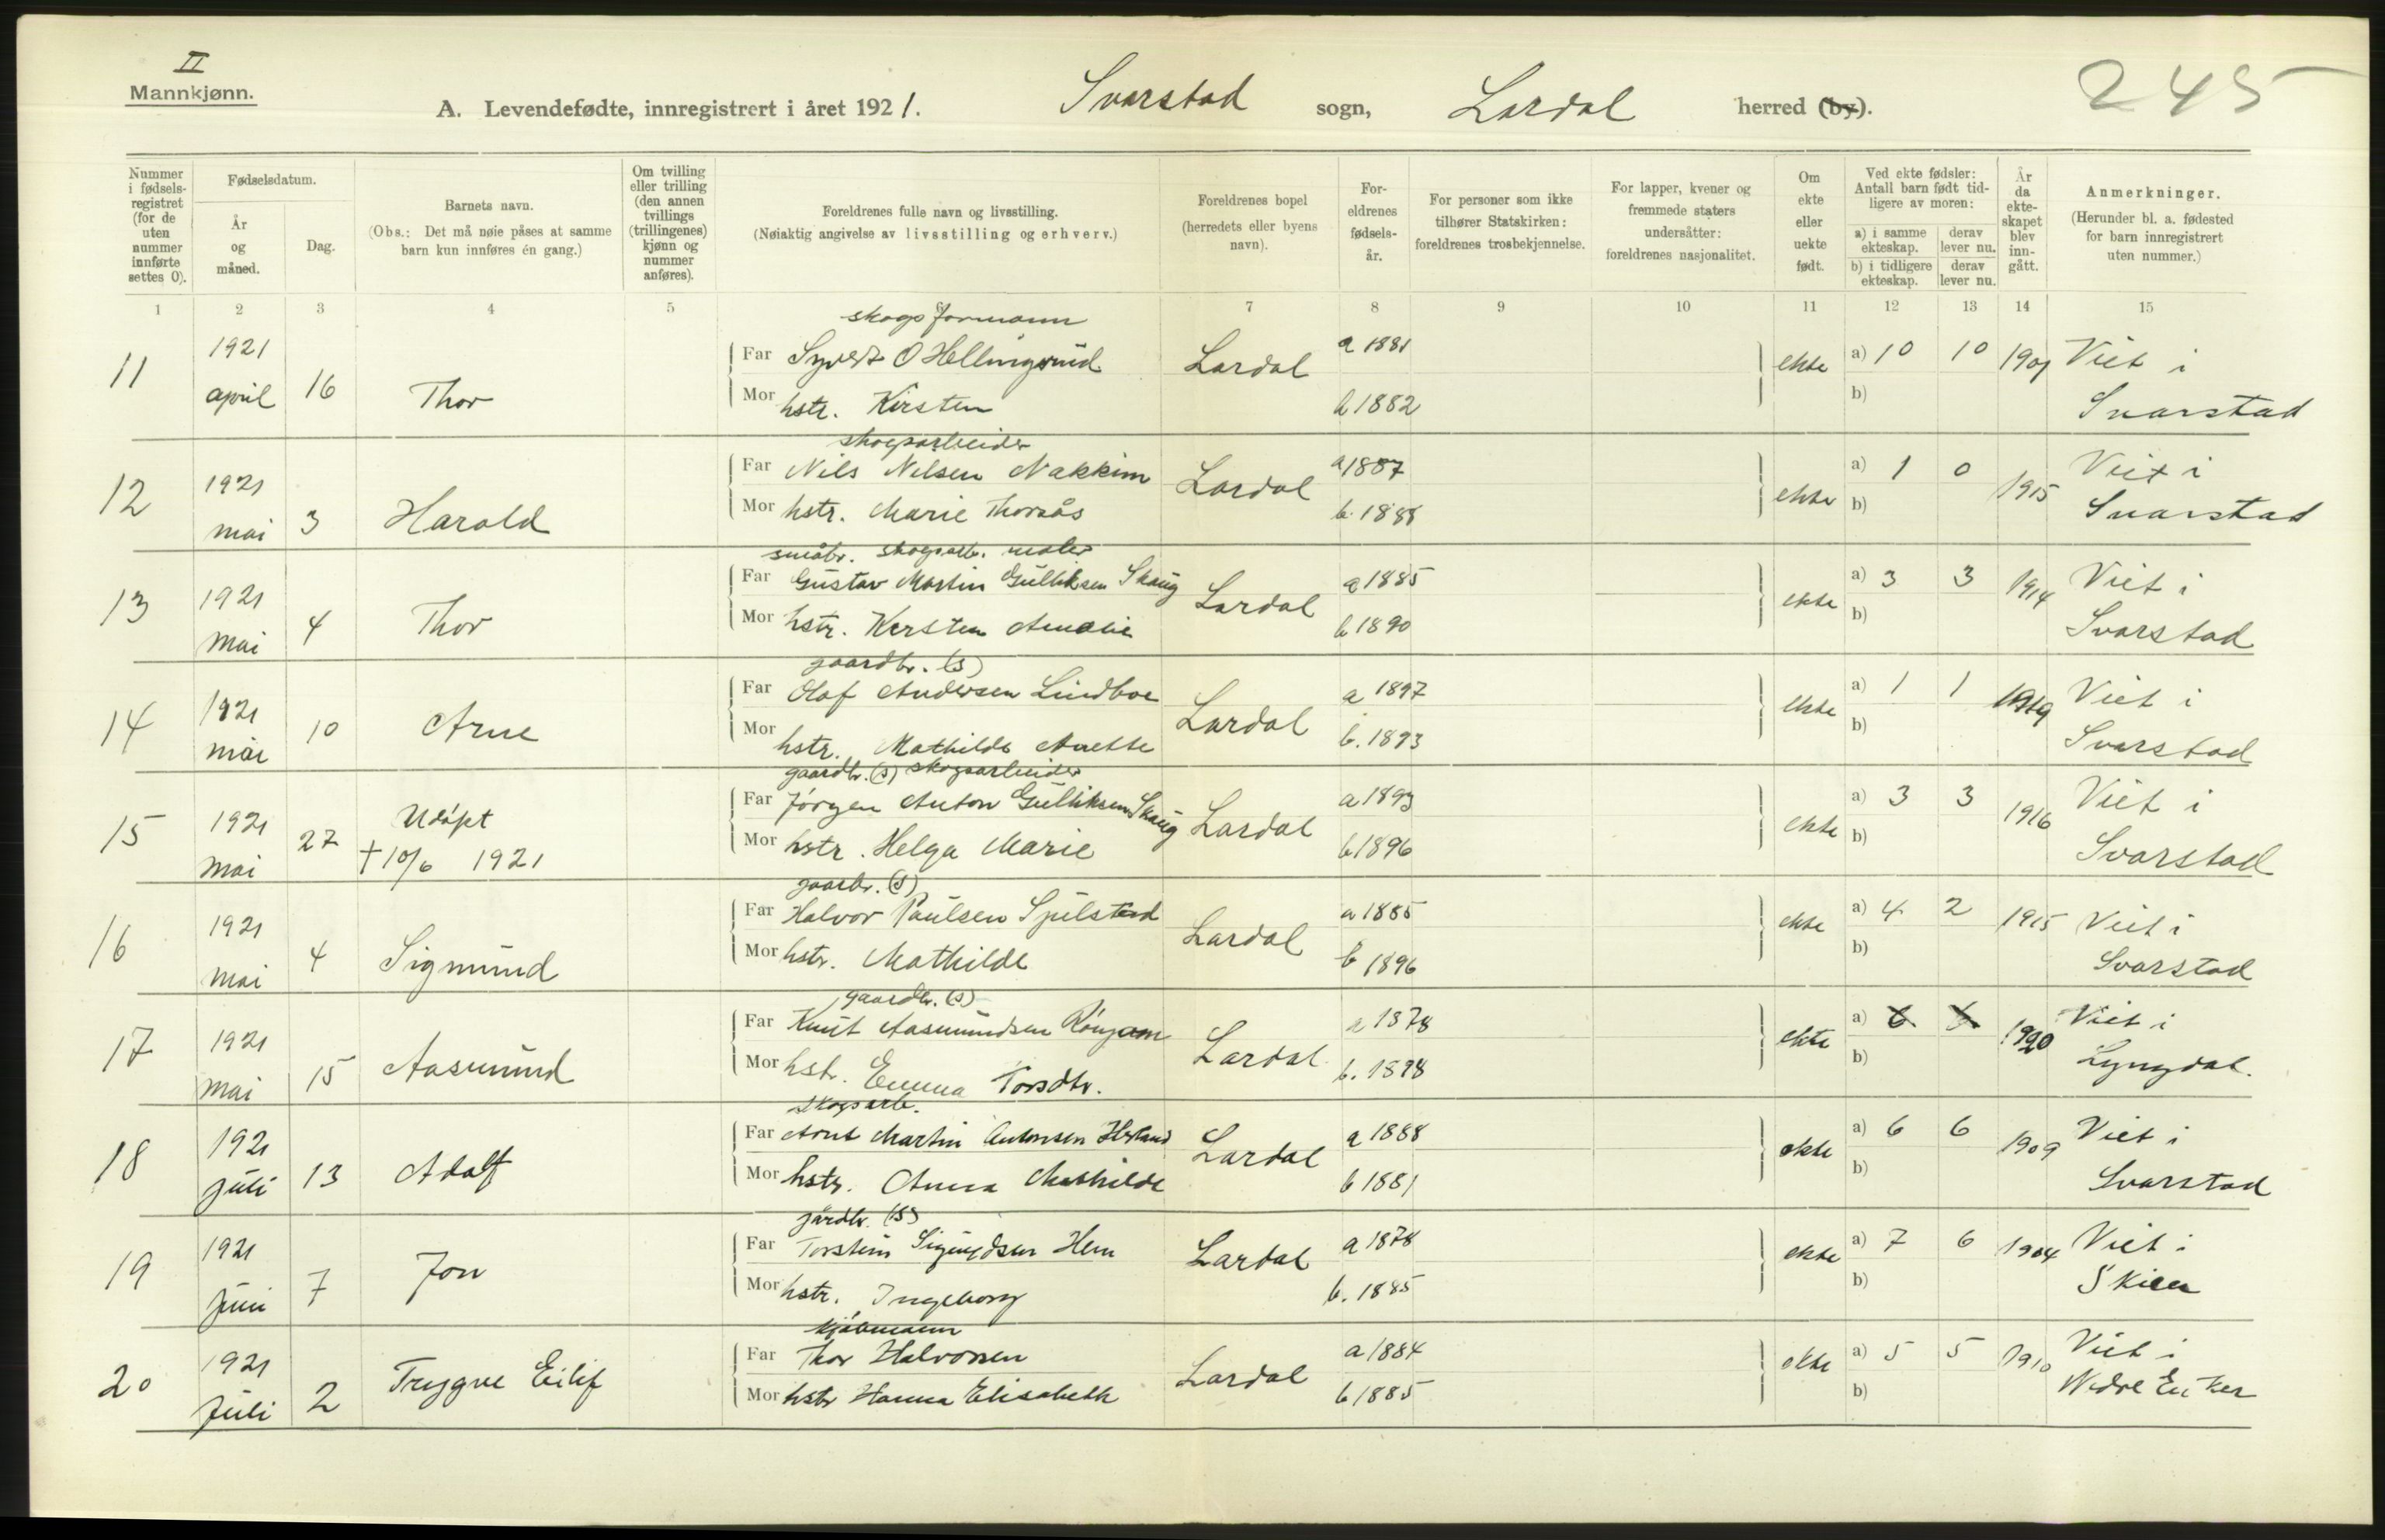 II
Mannkjønn.
A. Levendefødte, innregistrert i året 1921. Svarstad sogn, Lardal herred (by).
245
Nummer i fødsels-registret (for de uten nummer innførte settes 0).
Fødselsdatum.
År og måned.
Dag.
Barnets navn.
(Obs.: Det må nøie påses at samme barn kun innføres én gang.)
Om tvilling eller trilling (den annen tvillings (trillingenes) kjønn og nummer anføres).
Foreldrenes fulle navn og livsstilling.
(Nøiaktig angivelse av livsstilling og erhverv.)
Foreldrenes bopel (herredets eller byens navn).
For-eldrenes fødsels-år.
For personer som ikke tilhører Statskirken: foreldrenes trosbekjennelse.
For lapper, kvener og fremmede staters undersåtter: foreldrenes nasjonalitet.
Om ekte eller uekte født.
Ved ekte fødsler: Antall barn født tid-ligere av moren:
a) i samme ekteskap. derav lever nu.
b) i tidligere ekteskap. derav lever nu.
År da ekte-skapet blev inn-gått.
Anmerkninger.
(Herunder bl. a. fødested for barn innregistrert uten nummer.)
1 2 3 4 5 6 7 8 9 10 11 12 13 14 15
skogsformann
11 1921 april 16 Thor Far Syvert O Hellingsrud Lardal a 1881 ekte a) 10 10 1901 Viet i
Mor hstr. Kirsten b 1882 b) Svarstad
skogsarbeider
12 1921 mai 3 Harald Far Nils Nilsen Nakkim Lardal a 1887 ekte a) 1 0 1915 Viet i
Mor hstr. Marie Thorsås b. 1888 b) Svarstad
småbr. skogsarb. maler
13 1921 mai 4 Thor Far Gustav Martin Gulliksen Skaug Lardal a 1885 ekte a) 3 3 1914 Viet i
Mor hstr. Kirsten Amalie b 1890 b) Svarstad
gaardbr. (s)
14 1921 mai 10 Arne Far Olaf Andersen Lindboe Lardal a 1897 ekte a) 1 1 1919 Viet i
Mor hstr. Mathilde Anette b. 1893 b) Svarstad
gaardbr. (s) skogsarbeider
15 1921 mai 27 Udøpt Far Jørgen Anton Gulliksen Skaug Lardal a 1893 ekte a) 3 3 1916 Viet i
† 10/6 1921 Mor hstr. Helga Marie b 1896 b) Svarstad
gaarbr. (s)
16 1921 mai 4 Sigmund Far Halvor Paulsen Lardal a 1885 ekte a) 4 2 1915 Viet i
Mor hstr. Mathilde b 1896 b) Svarstad
gaardbr. (s)
17 1921 mai 15 Aasmund Far Knut Aasmundsen Lardal a 1878 ekte a) 1920 Viet i
Mor hst. Emma Torsdtr. b. 1898 b) Lyngdal.
skogsarb.
18 1921 juli 13 Adolf Far Arnt Martin Antonsen Lardal a 1888 ekte a) 6 6 1909 Viet i
Mor hstr. Anna Mathilde b 1881 b) Svarstad
gårdbr. (s)
19 1921 juni 7 Jon Far Torstein Sigurdsen Hem Lardal a 1878 ekte a) 7 6 1904 Viet i
Mor hstr. Ingeborg b. 1885 b) Skien
kjøbmann
20 1921 Juli 2 Trygve Eilif Far Thor Halvorsen Lardal a 1884 ekte a) 5 5 1910 Viet i
Mor hstr Hanna Elisabeth b 1885 b) Nedre Eiker